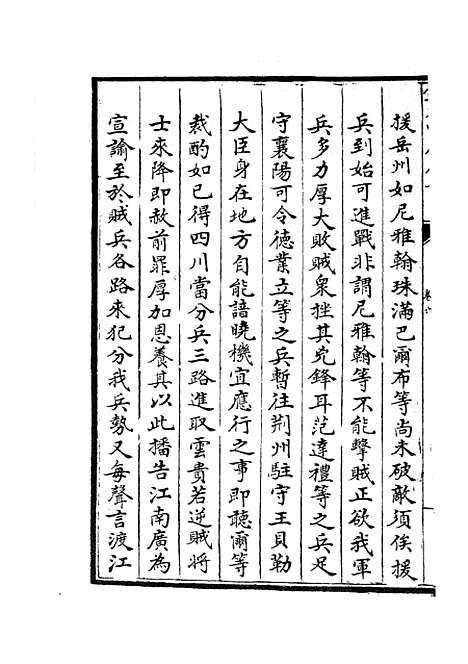 援岳州如尼雅翰珠滿巴爾布等尚未破敵須俟援
兵到始可進戰非謂尼雅翰等不能擊賊正欲我軍
兵多力厚大敗賊衆挫其兇鋒耳范達禮等之兵足
守襄陽可令德業立等之兵暫往荆州駐守王貝勒
大臣身在地方自能諳曉機宜應行之事即聽爾等
裁酌如已得四川當分兵三路進取雲貴若逆賊將
士來降即赦前罪厚加恩養其以此播告江南廣為
宣諭至於賊兵各路來犯分我兵勢又每聲言渡江